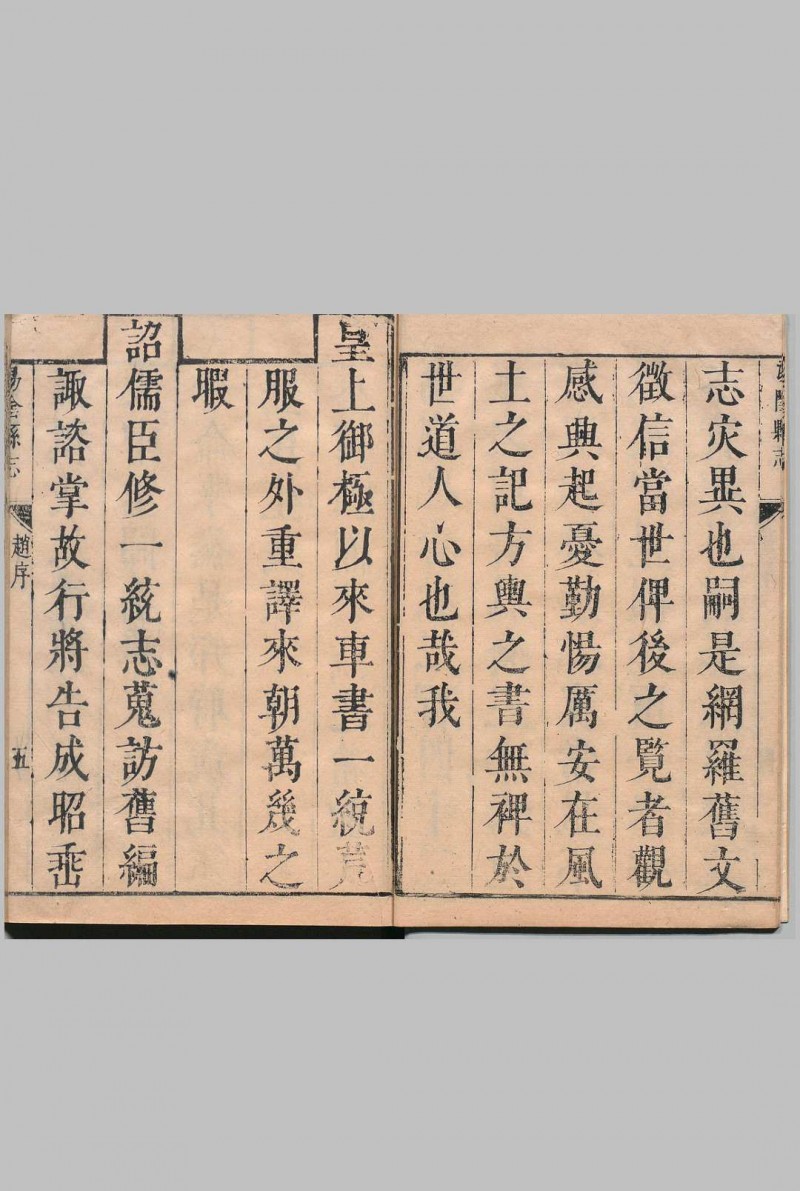 志灾異也嗣是網羅舊文
徵信當世俾後之覽者觀
感興起憂勤惕厲安在風
土之記方輿之書無裨於
世道人心也哉我
皇上御極以來車書一統荒
服之外重譯來朝萬幾之
暇
詔儒臣修一統志蒐訪舊編
諏諮掌故行將告成昭埀
湯陰縣志
趙序
五